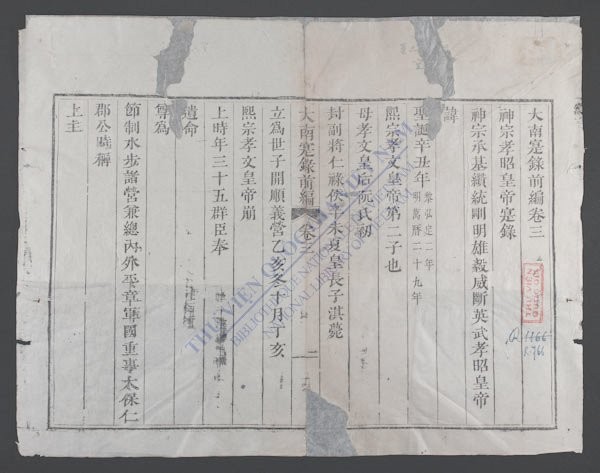 大南寔錄前編卷三
神宗孝昭皇帝寔錄
神宗承基纘統剛明雄毅威斷英武孝昭皇帝
諱
聖誕辛丑年黎弘定二年明萬曆二十九年
熙宗孝文皇帝第二子也
母孝文皇后阮氏初
封副將仁祿侯未夏皇長子淇薨
大南寔錄前編 卷三
立為世子開順義營乙亥冬十月丁亥
熙宗孝文皇帝崩
上時年三十五群臣奉
遺命
尊為
節制水步諸營兼總內外平章軍國重事太保仁
郡公曉稱
上主
THƯ VIỆN QUỐC GIA VIỆT NAM
NATIONAL LIBRARY OF VIETNAM